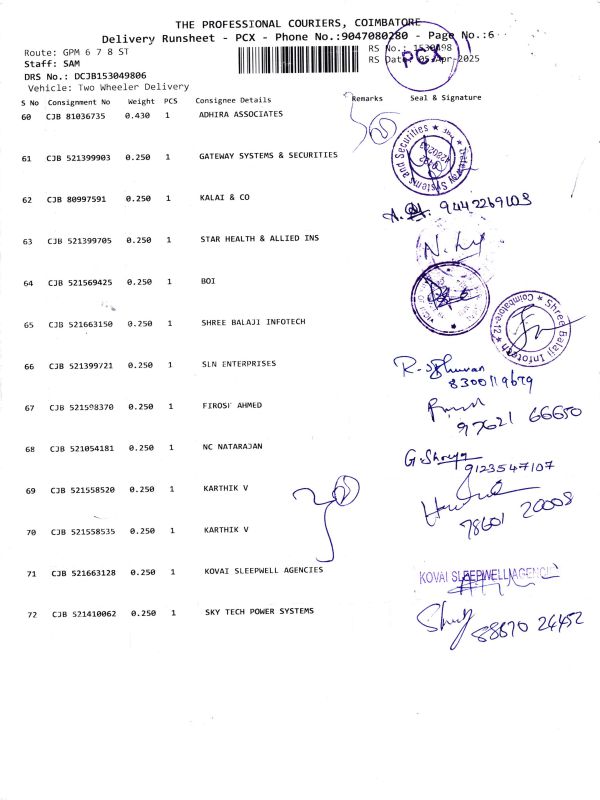 THE PROFESSIONAL COURIERS, COIMBATORE
Delivery Runsheet - PCX - Phone No.:9047080280 - Page No.:6
Route: GPM 6 7 8 ST
RS No.:
Staff: SAM
RS Date: 05-Apr-2025
PCX
DRS No.: DCJB153049806
Vehicle: Two Wheeler Delivery
S No Consignment No Weight PCS Consignee Details Remarks Seal & Signature
60 CJB 81036735 0.430 1 ADHIRA ASSOCIATES
61 CJB 521399903 0.250 1 GATEWAY SYSTEMS & SECURITIES
Gateway Systems and Securities
62 CJB 80997591 0.250 1 KALAI & CO
9442269103
63 CJB 521399705 0.250 1 STAR HEALTH & ALLIED INS
64 CJB 521569425 0.250 1 BOI
65 CJB 521663150 0.250 1 SHREE BALAJI INFOTECH
Shree Balaji Infotech Coimbatore-12
66 CJB 521399721 0.250 1 SLN ENTERPRISES
8300119679
67 CJB 521598370 0.250 1 FIROSE AHMED
97621 66650
68 CJB 521054181 0.250 1 NC NATARAJAN
G. Shreya
9123547107
69 CJB 521558520 0.250 1 KARTHIK V
78601 20008
70 CJB 521558535 0.250 1 KARTHIK V
71 CJB 521663128 0.250 1 KOVAI SLEEPWELL AGENCIES
KOVAI SLEEPWELL AGENCIES
72 CJB 521410062 0.250 1 SKY TECH POWER SYSTEMS
88870 24452